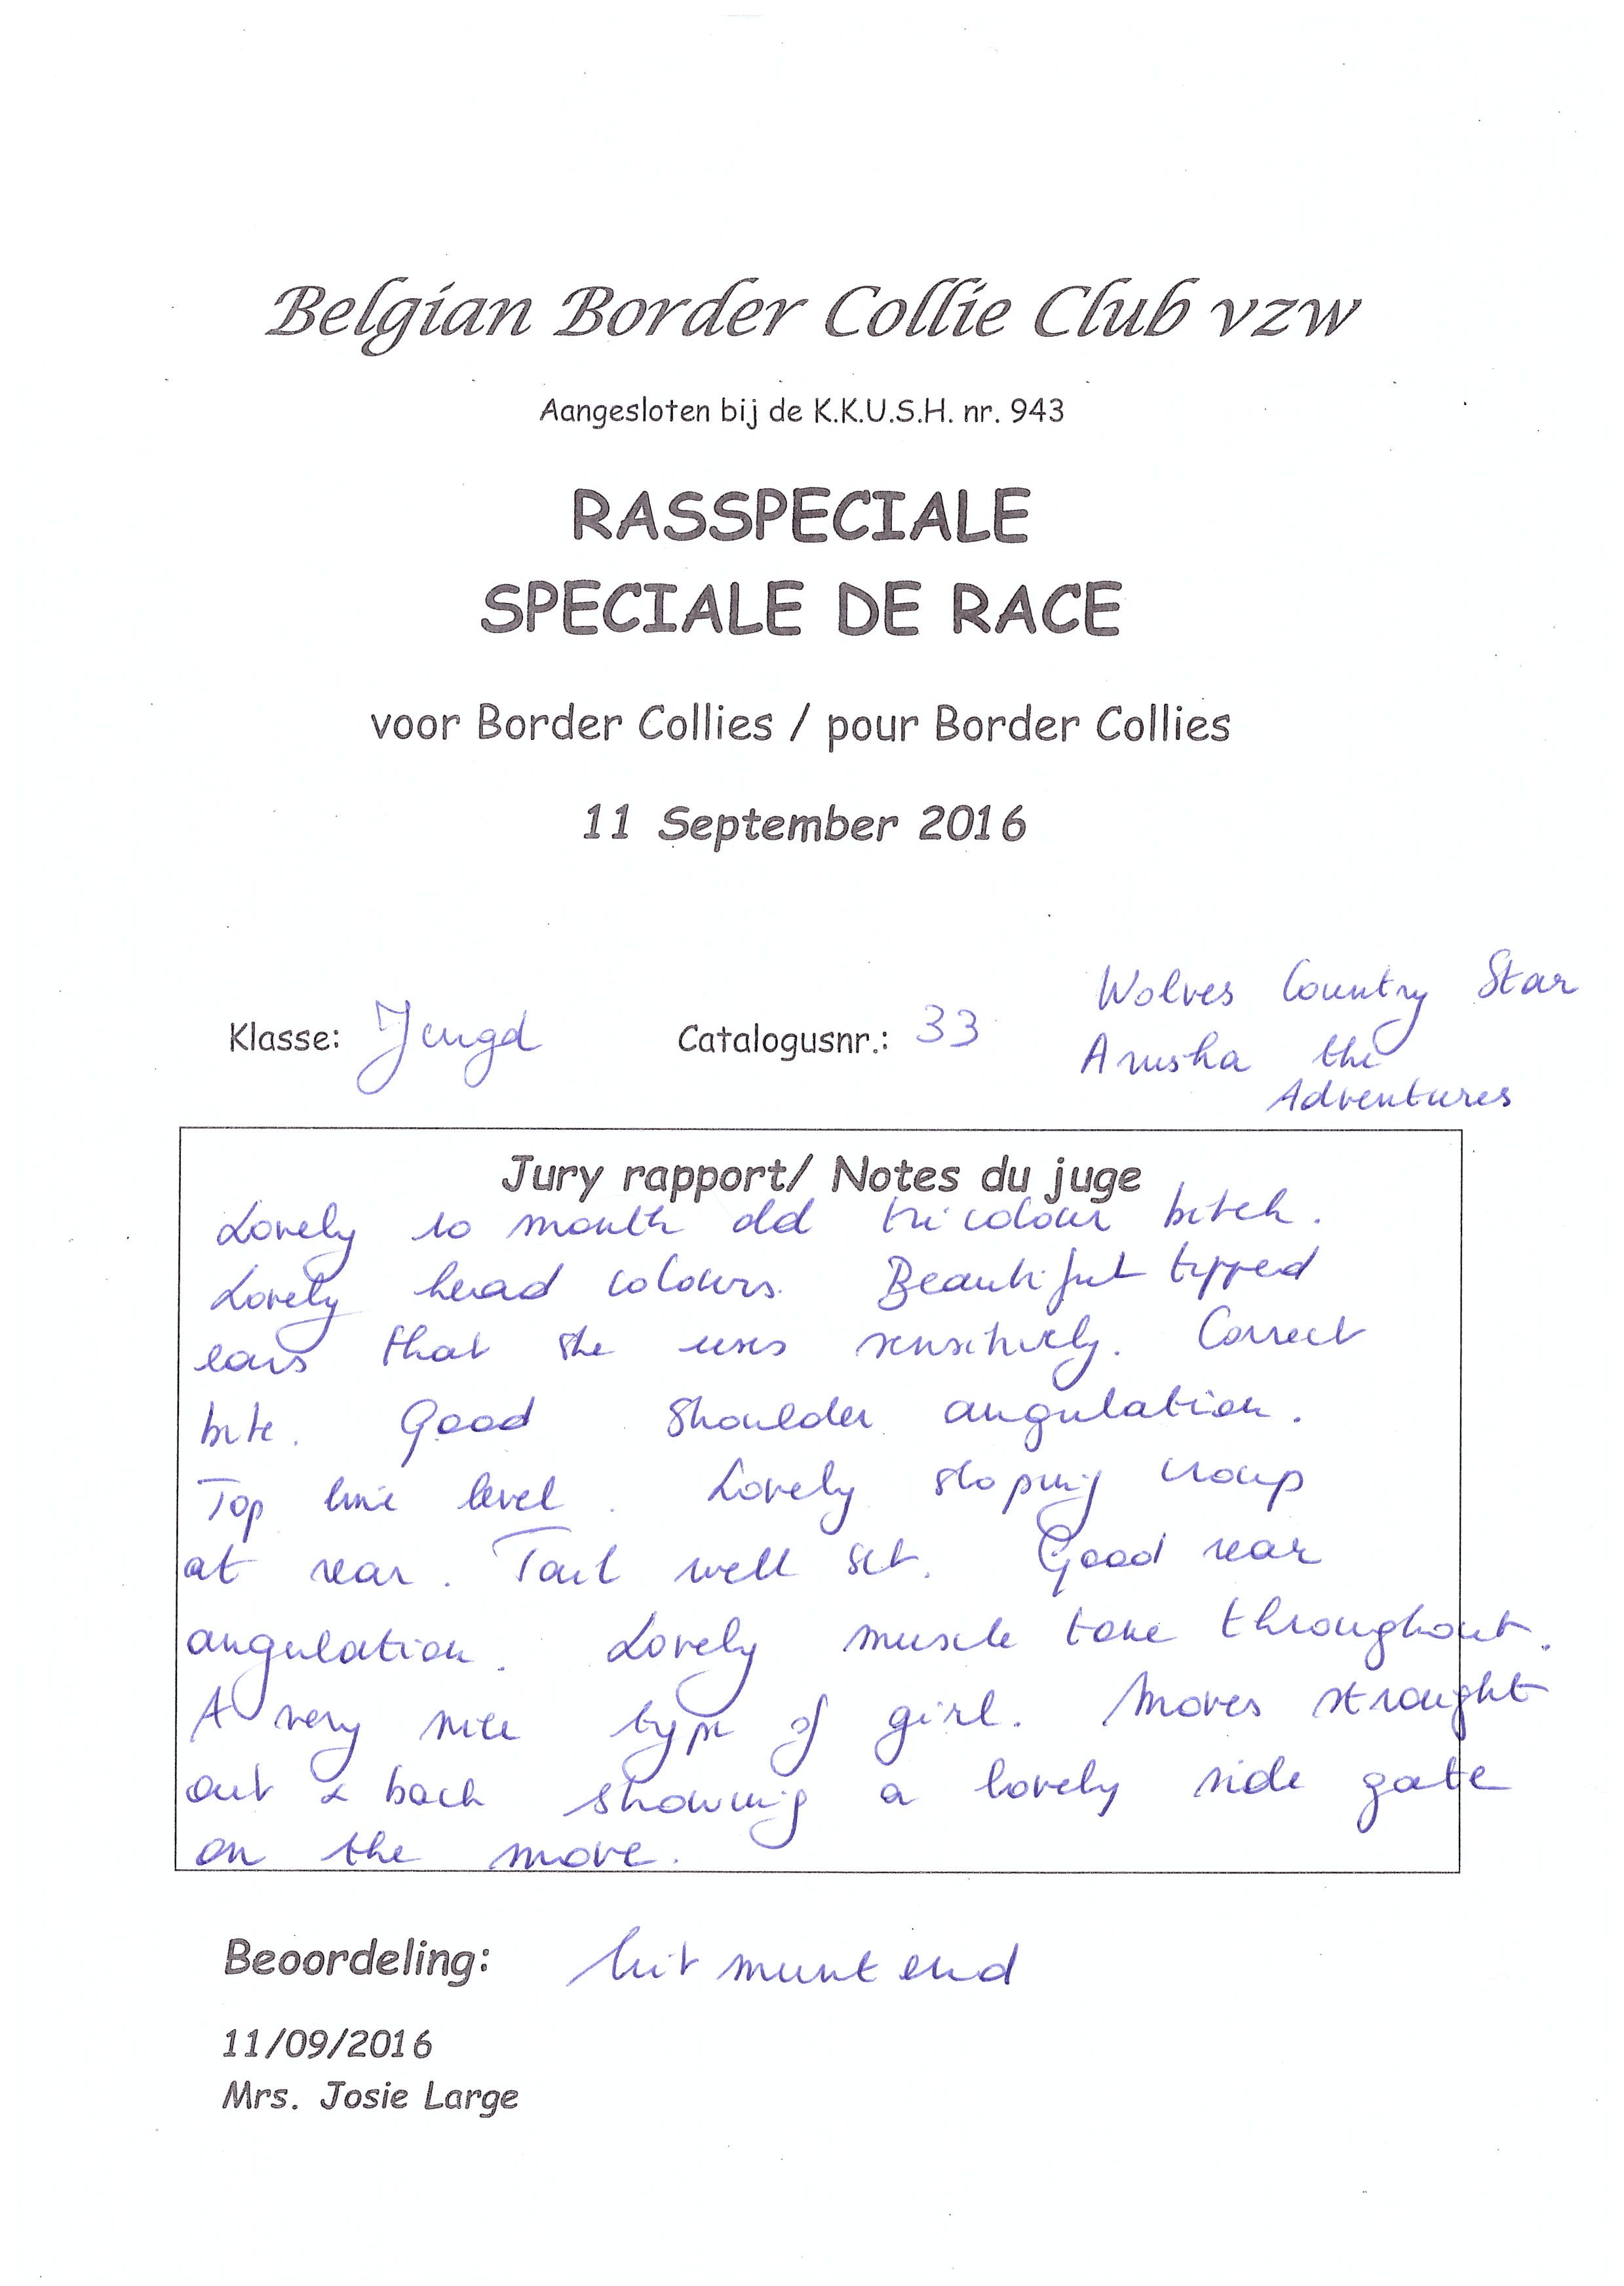 Belgian Border Collie Club vzw
Aangesloten bij de K.K.U.S.H. nr. 943
RASSPECIALE
SPECIALE DE RACE
voor Border Collies / pour Border Collies
11 September 2016
Klasse: Jeugd Catalogusnr.: 33
Wolves Country Star
Anusha the
Adventures
Jury rapport/ Notes du juge
Lovely 10 month old tricolour bitch.
Lovely head colours. Beautiful tipped
ears that she uses sensitively. Correct
bite. Good shoulder angulation.
Top line level. Lovely sloping croup
at rear. Tail well set. Good rear
angulation. Lovely muscle tone throughout.
A very nice type of girl. Moves straight
out & back showing a lovely side gate
on the move.
Beoordeling: Uitmuntend
11/09/2016
Mrs. Josie Large